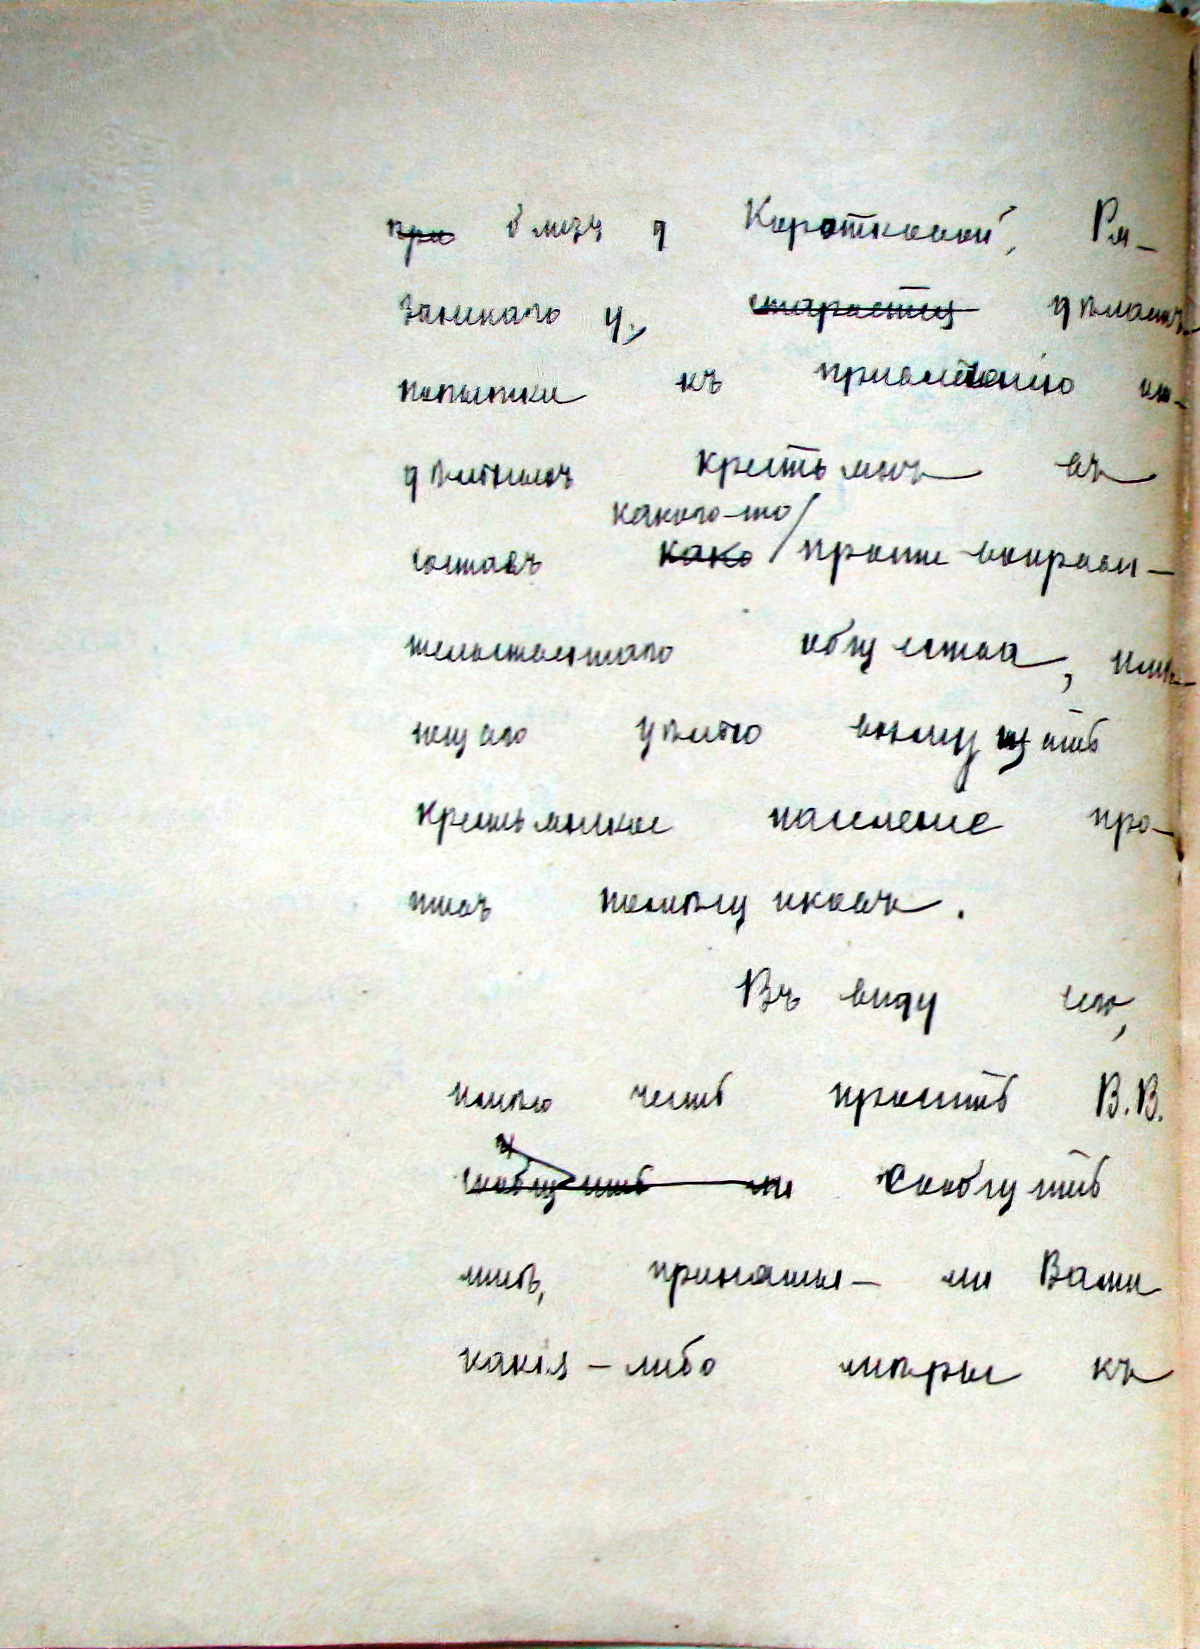 при близъ д Коротковой, Ря-
занскаго у., старостиц дѣлаютъ
попытки къ привлеченію от-
дѣльныхъ крестьянъ въ
какого-то
составъ како противоправи-
тельственнаго общества, имѣ-
ющаго цѣлью возмущать
крестьянское населеніе про-
тивъ помѣщиковъ.
Въ виду сего,
имѣю честь просить В.В.
сообщить ли сообщить
мнѣ, приняты-ли Вами
какія-либо мѣры къ